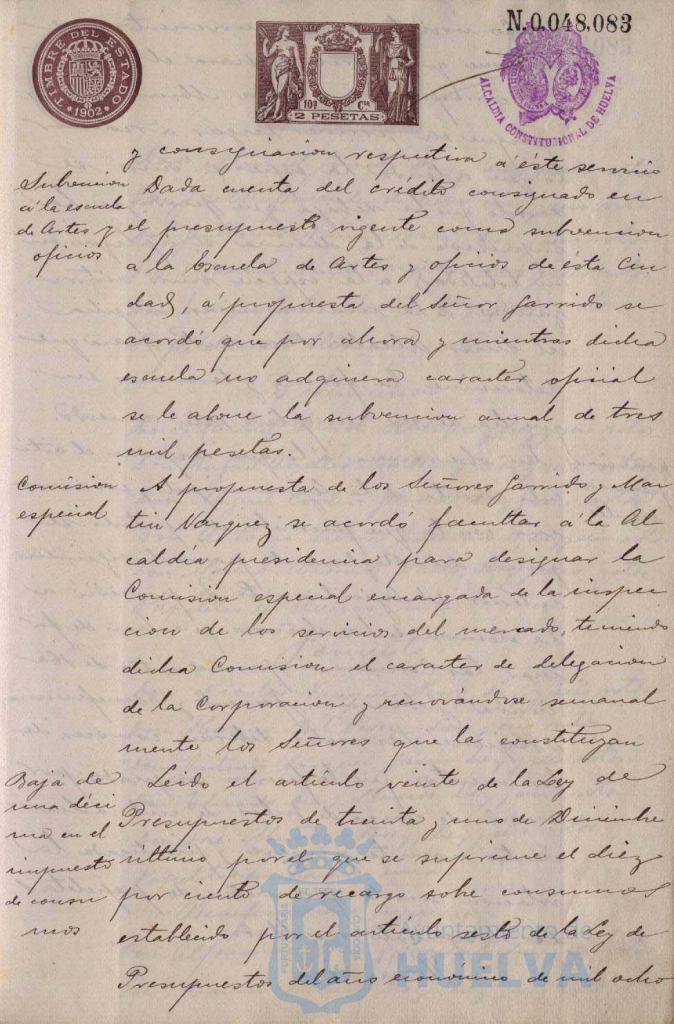 TIMBRE DEL ESTADO
1902
AÑO 1902
10ª Cse
2 PESETAS
N.0.048,083
ALCALDIA CONSTITUCIONAL DE HUELVA
y consignacion respectiva á éste servicio
Subvencion
á la escuela
de Artes y
oficios
Dada cuenta del crédito consignado en
el presupuesto vigente como subvencion
a la Escuela de Artes y oficios de ésta Ciu
dad, á propuesta del Señor Garrido se
acordó que por ahora y mientras dicha
escuela no adquiera caracter oficial
se le abone la subvencion anual de tres
mil pesetas.
Comision
especial
A propuesta de los Señores Garrido y Mar
tin Vazquez se acordó facultar á la Al
caldía presidencia para designar la
Comision especial encargada de la inspec
cion de los servicios del mercado, teniendo
dicha Comision el caracter de delegacion
de la Corporacion y renovándose semanal
mente los Señores que la constituyan
Baja de
una déci
ma en el
impuesto
de consu
mos
Leido el artículo veinte de la Ley de
Presupuestos de treinta y uno de Diciembre
ultimo por el que se suprime el diez
por ciento de recargo sobre consumos
establecido por el artículo sesto de la Ley de
Presupuestos del año economico de mil ocho
Ayuntamiento de
HUELVA